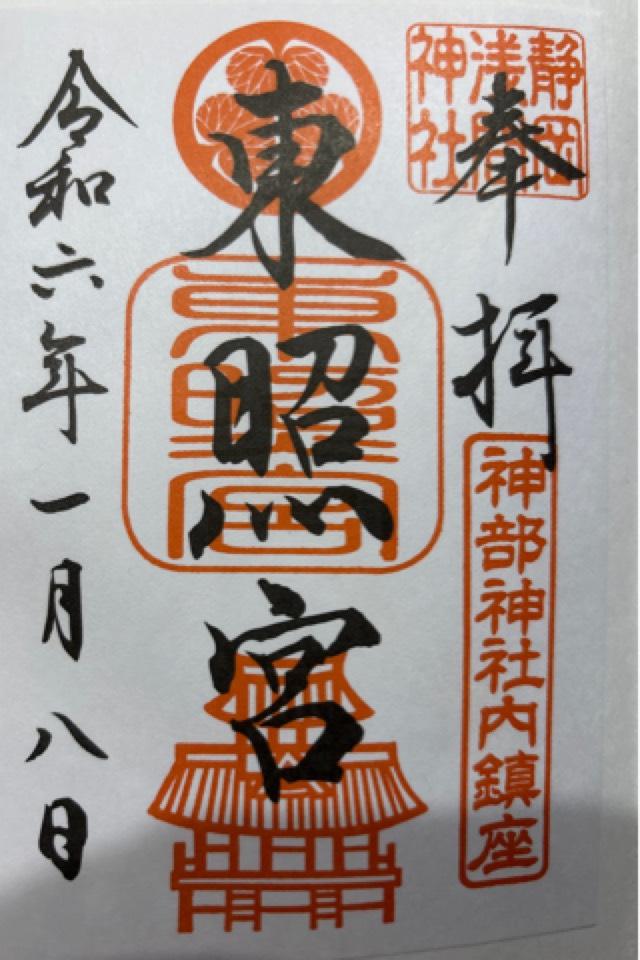 奉拝
静岡
浅間
神社
神部神社内鎮座
東照宮
東照宮
令和六年一月八日